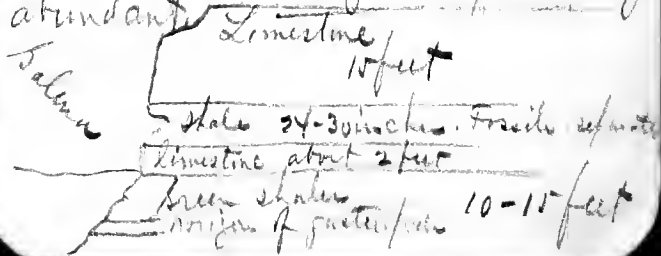 abundant
Limestine
15 feet
Galena
Shale 24-30 inches. Fossils separate
limestine about 2 feet
Green shales
horizon of gasteropods 10-15 feet